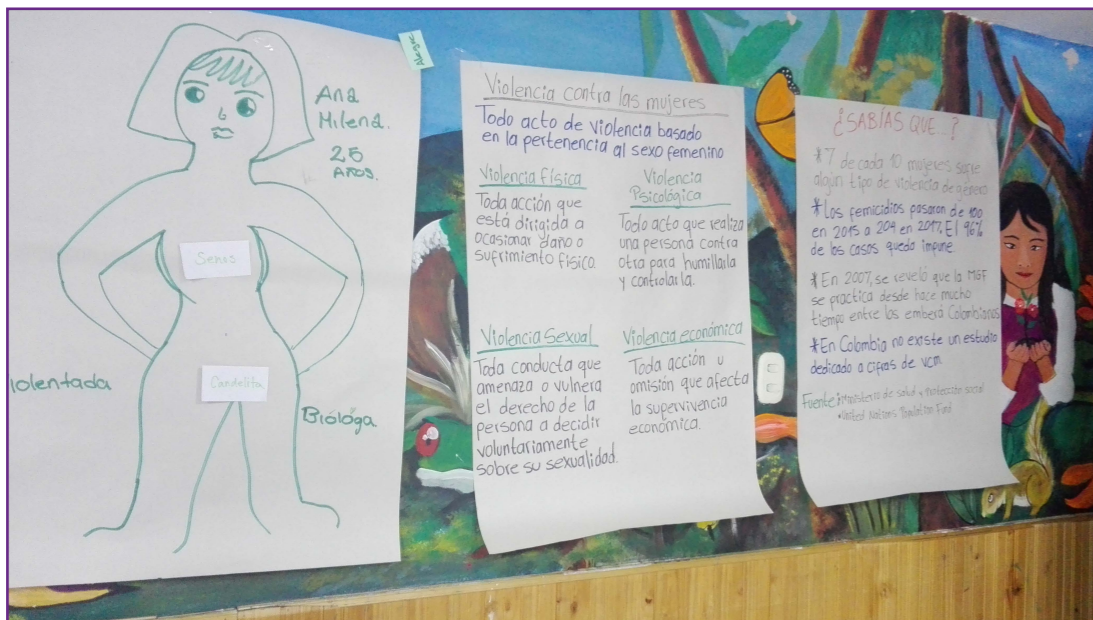 Alegre
Ana
Milena.
25
Años.
Senos
Candelita
iolentada
Bióloga
Violencia contra las mujeres
Todo acto de violencia basado
en la pertenencia al sexo femenino
Violencia física
Toda acción que
está dirigida a
ocasionar daño o
sufrimiento físico.
Violencia
Psicológica
Todo acto que realiza
una persona contra
otra para humillarla
y controlarla.
Violencia Sexual
Toda conducta que
amenaza o vulnera
el derecho de la
persona a decidir
voluntariamente
sobre su sexualidad.
Violencia económica
Toda acción u
omisión que afecta
la supervivencia
económica.
¿SABÍAS QUE...?
* 7 de cada 10 mujeres sufre
algún tipo de violencia de género
* Los femicidios pasaron de 100
en 2015 a 204 en 2017. El 96%
de los casos queda impune.
* En 2007, se reveló que la MGF
se practica desde hace mucho
tiempo entre los emberá Colombianos
* En Colombia no existe un estudio
dedicado a cifras de vcm.
Fuente: Ministerio de salud y Protección social
• United Nations Population Fund